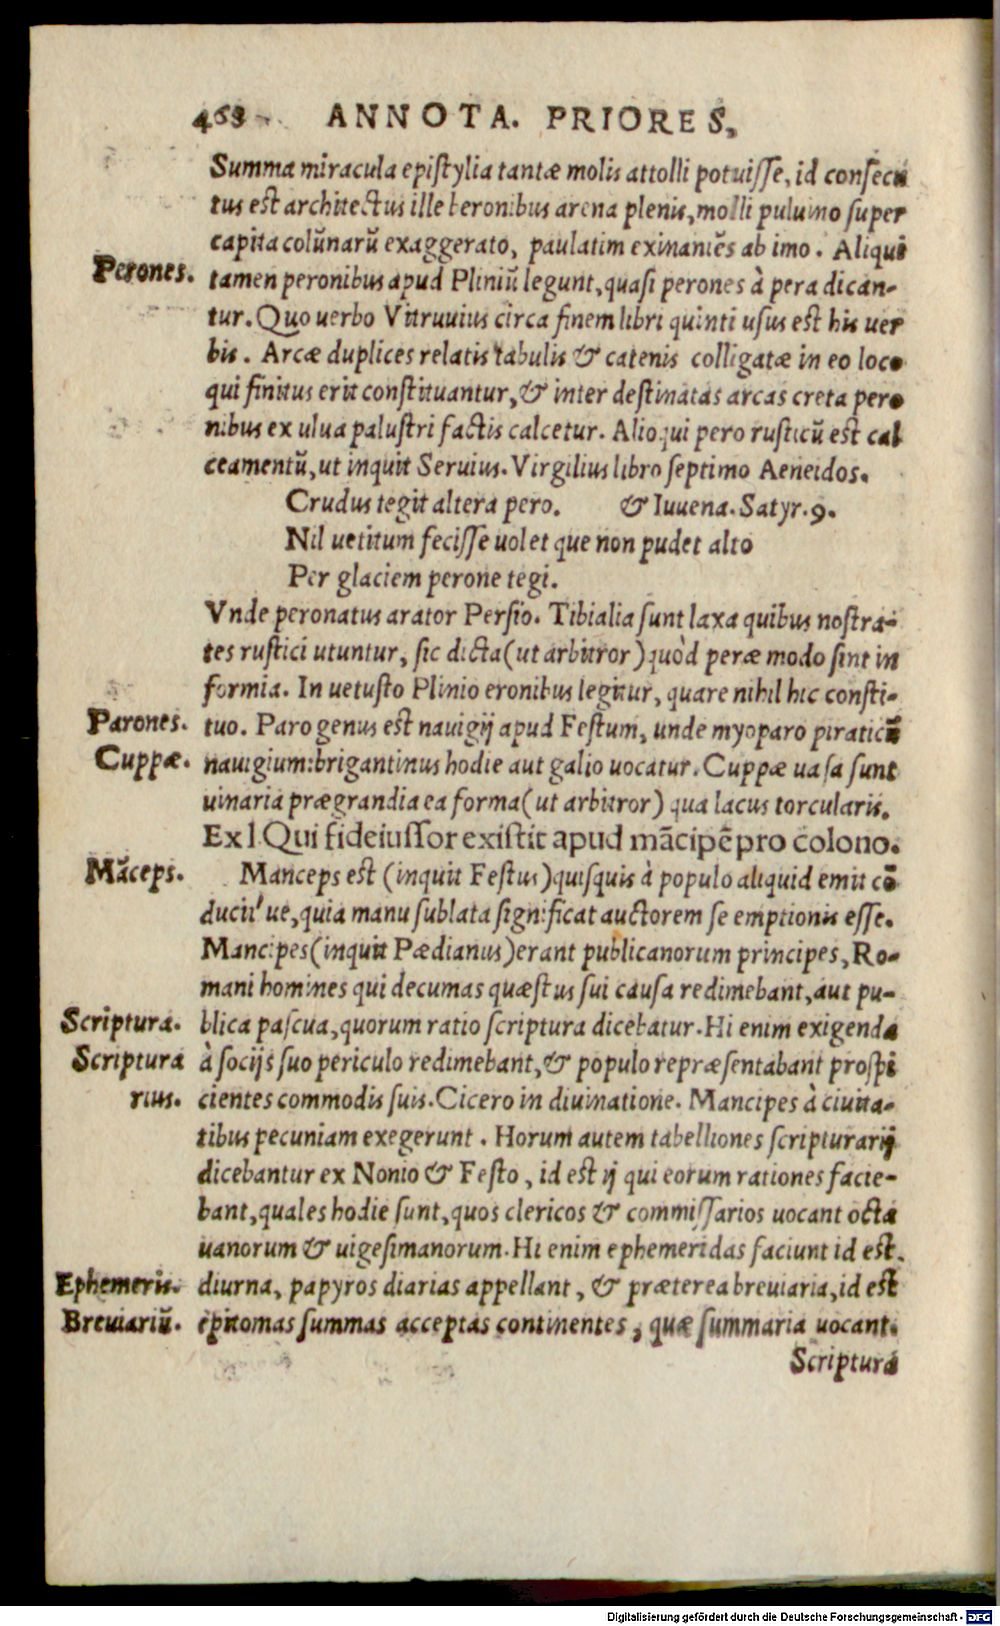 468 ANNOTA. PRIORES,
Summa miracula epistylia tantæ molis attolli potuisse, id consecu
tus est architectus ille heronibus arena plenis, molli puluino super
capita colūnarū exaggerato, paulatim exinaniēs ab imo. Aliqui
Perones. tamen peronibus apud Pliniū legunt, quasi perones à pera dican-
tur. Quo uerbo Vitruuius circa finem libri quinti usus est his uer
bis. Arcæ duplices relatis tabulis & catenis colligatæ in eo loco
qui finitus erit constituantur, & inter destinatas arcas creta pero
nibus ex ulua palustri factis calcetur. Alioqui pero rusticū est cal
ceamentū, ut inquit Seruius. Virgilius libro septimo Aeneidos.
Crudus tegit altera pero. & Iuuena. Satyr. 9.
Nil uetitum fecisse uolet que non pudet alto
Per glaciem perone tegi.
Vnde peronatus arator Persio. Tibialia sunt laxa quibus nostra-
tes rustici utuntur, sic dicta (ut arbitror) quòd peræ modo sint in
formia. In uetusto Plinio eronibus legitur, quare nihil hic consti-
Parones. tuo. Paro genus est nauigij apud Festum, unde myoparo piraticū
Cuppæ. nauigium: brigantinus hodie aut galio uocatur. Cuppæ uasa sunt
uinaria prægrandia ea forma (ut arbitror) qua lacus torcularis.
Ex l Qui fideiussor existit apud mācipē pro colono.
Māceps. Manceps est (inquit Festus) quisquis à populo aliquid emit cō
ducit' ue, quia manu sublata significat auctorem se emptionis esse.
Mancipes (inquit Pædianus) erant publicanorum principes, Ro-
mani homines qui decumas quæstus sui causa redimebant, aut pu-
Scriptura. blica pascua, quorum ratio scriptura dicebatur. Hi enim exigenda
Scriptura à socijs suo periculo redimebant, & populo repræsentabant prospi
rius. cientes commodis suis. Cicero in diuinatione. Mancipes à ciuita-
tibus pecuniam exegerunt. Horum autem tabelliones scripturarij
dicebantur ex Nonio & Festo, id est ij qui eorum rationes facie-
bant, quales hodie sunt, quos clericos & commissarios uocant octa
uanorum & uigesimanorum. Hi enim ephemeridas faciunt id est.
Ephemeris. diurna, papyros diarias appellant, & præterea breuiaria, id est
Breuiariū. epitomas summas acceptas continentes, quæ summaria uocant.
Scriptura
Digitalisierung gefördert durch die Deutsche Forschungsgemeinschaft - DFG